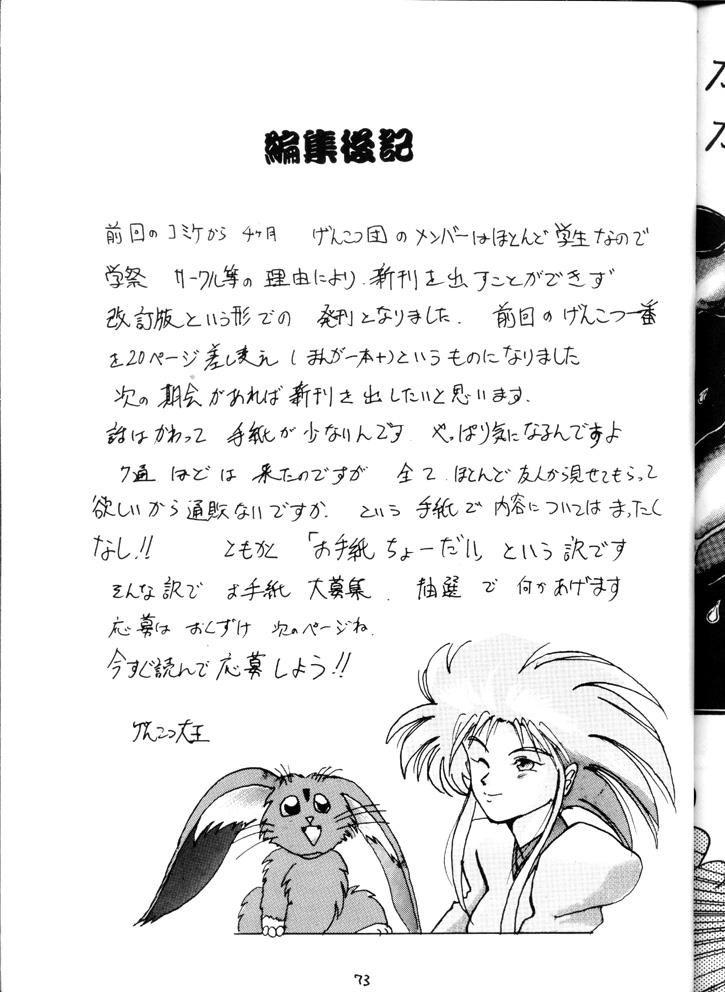 編集後記
前回のコミケから 4ヶ月 げんこつ団のメンバーはほとんど学生なので
学祭 サークル等の理由により、新刊を出すことができず
改訂版という形での 発刊となりました. 前回のげんこつ一番
を20ページ差し変え (まんが一本+)というものになりました
次の期会があれば新刊を出したいと思います.
話はかわって 手紙が少ないんです やっぱり気になるんですよ
7通 ほどは 来たのですが 全て、ほとんど友人から見せてもらって
欲しいから通販ないですか. という手紙で内容についてはまったく
なし!! ともかく「お手紙 ちょーだい」という訳です
そんな訳で お手紙 大募集. 抽選で何かあげます
応募は おくずけ 次のページね.
今すぐ読んで応募しよう!!
げんこつ大王
73